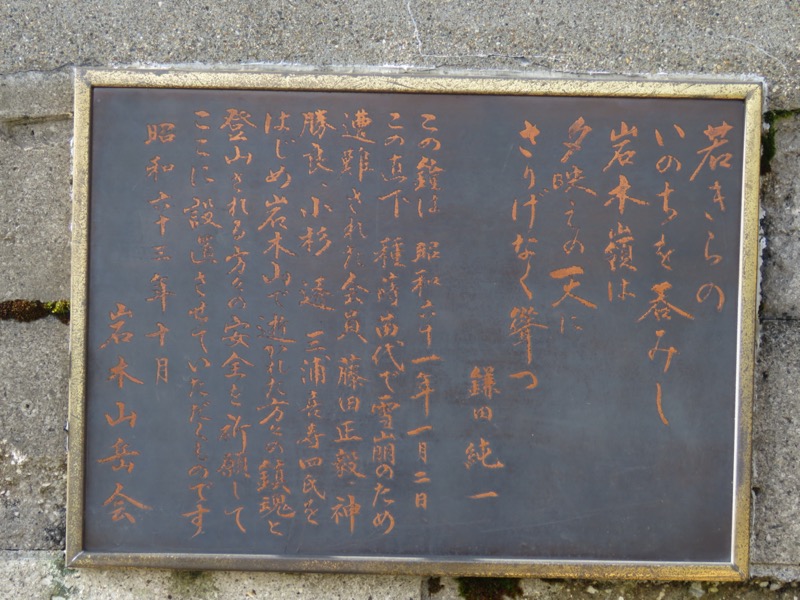 若きらの
いのちを呑みし
岩木嶺は
夕映えの天に
さりげなく聳つ
鎌田純一
この鐘は 昭和六十一年一月二日
この直下 種蒔苗代で雪崩のため
遭難された会員 藤田正毅・神
勝良・小杉 遠・三浦喜寿四氏を
はじめ岩木山で逝かれた方々の鎮魂と
登山される方々の安全を祈願して
ここに設置させていただくものです
昭和六十三年十月
岩木山岳会